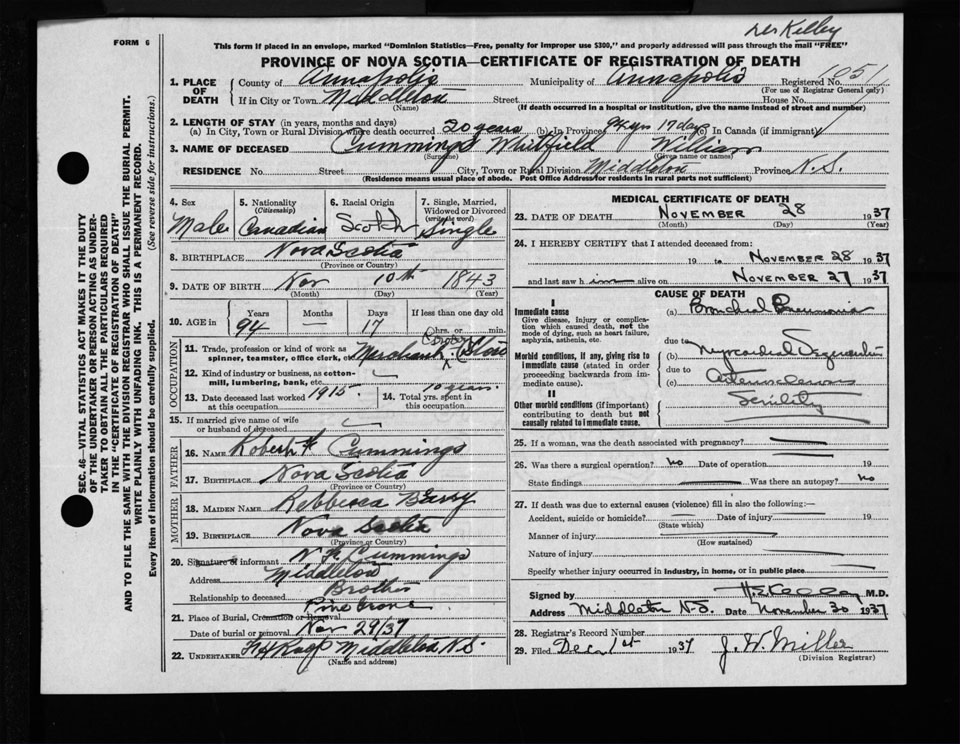 Kelley
FORM 6
This form if placed in an envelope, marked "Dominion Statistics—Free, penalty for improper use $300," and properly addressed will pass through the mail "FREE"
PROVINCE OF NOVA SCOTIA—CERTIFICATE OF REGISTRATION OF DEATH
1. PLACE OF DEATH
County of Annapolis Municipality of Annapolis Registered No. 1051
(For use of Registrar General only)
If in City or Town Middleton Street House No.
(Name) (If death occurred in a hospital or institution, give the name instead of street and number)
2. LENGTH OF STAY (in years, months and days)
(a) In City, Town or Rural Division where death occurred 20 years (b) In Province 94 yrs 17 days (c) In Canada (if immigrant)
3. NAME OF DECEASED Cummings Whitfield William
(Surname) (Given name or names)
RESIDENCE No. Street City, Town or Rural Division Middleton Province N.S.
(Residence means usual place of abode. Post Office Address for residents in rural parts not sufficient)
SEC. 46—VITAL STATISTICS ACT MAKES IT THE DUTY
OF THE UNDERTAKER OR PERSON ACTING AS UNDER-
TAKER TO OBTAIN ALL THE PARTICULARS REQUIRED
IN THE "CERTIFICATE OF REGISTRATION OF DEATH"
AND TO FILE THE SAME WITH THE DIVISION REGISTRAR WHO SHALL ISSUE THE BURIAL PERMIT.
WRITE PLAINLY WITH UNFADING INK. THIS IS A PERMANENT RECORD.
Every item of information should be carefully supplied. (See reverse side for instructions.)
4. Sex Male
5. Nationality (Citizenship) Canadian
6. Racial Origin Scotch
7. Single, Married, Widowed or Divorced (write the word) Single
8. BIRTHPLACE Nova Scotia
(Province or Country)
9. DATE OF BIRTH Nov 10th 1843
(Month) (Day) (Year)
10. AGE in Years Months Days If less than one day old
94 — 17 hrs. or min.
OCCUPATION
11. Trade, profession or kind of work as spinner, teamster, office clerk, etc. Merchant Store
12. Kind of industry or business, as cotton-mill, lumbering, bank, etc.
13. Date deceased last worked at this occupation 1915
14. Total yrs. spent in this occupation 10 years
15. If married give name of wife or husband of deceased
FATHER
16. NAME Robert Cummings
17. BIRTHPLACE Nova Scotia
(Province or Country)
MOTHER
18. MAIDEN NAME Rebbecca
19. BIRTHPLACE Nova Scotia
(Province or Country)
20. Signature of informant Cummings
Address Middleton
Relationship to deceased Brother
21. Place of Burial, Cremation or Removal Pine Grove
Date of burial or removal Nov 29/37
22. UNDERTAKER Middleton N.S.
(Name and address)
MEDICAL CERTIFICATE OF DEATH
23. DATE OF DEATH NOVEMBER 28 1937
(Month) (Day) (Year)
24. I HEREBY CERTIFY that I attended deceased from:
19 to NOVEMBER 28 1937
and last saw him alive on NOVEMBER 27 1937
CAUSE OF DEATH
I
Immediate cause
Give disease, injury or complication which caused death, not the mode of dying, such as heart failure, asphyxia, asthenia, etc.
(a) Bronchial Pneumonia
due to
Morbid conditions, if any, giving rise to immediate cause (stated in order proceeding backwards from immediate cause).
(b) Myocardial
due to
(c)
II
Other morbid conditions (if important) contributing to death but not causally related to immediate cause.
Senility
25. If a woman, was the death associated with pregnancy?
26. Was there a surgical operation? No Date of operation 19
State findings Was there an autopsy? No
27. If death was due to external causes (violence) fill in also the following:—
Accident, suicide or homicide? Date of injury 19
(State which)
Manner of injury
(How sustained)
Nature of injury
Specify whether injury occurred in industry, in home, or in public place
Signed by M.D.
Address Middleton N.S. Date November 30 1937
28. Registrar's Record Number
29. Filed Dec 1st 1937 J. W. Miller
(Division Registrar)